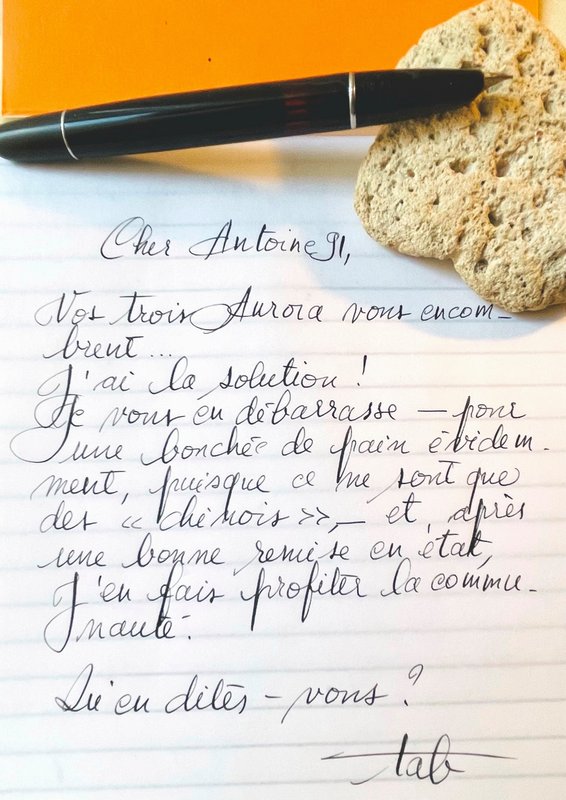 Cher Antoine91,
Vos trois Aurora vous encom-
brent...
J'ai la solution !
Je vous en débarrasse — pour
une bouchée de pain évidem-
ment, puisque ce ne sont que
des « chinois », — et, après
une bonne remise en état,
J'en fais profiter la commu-
nauté.
Qu'en dites-vous ?
tab